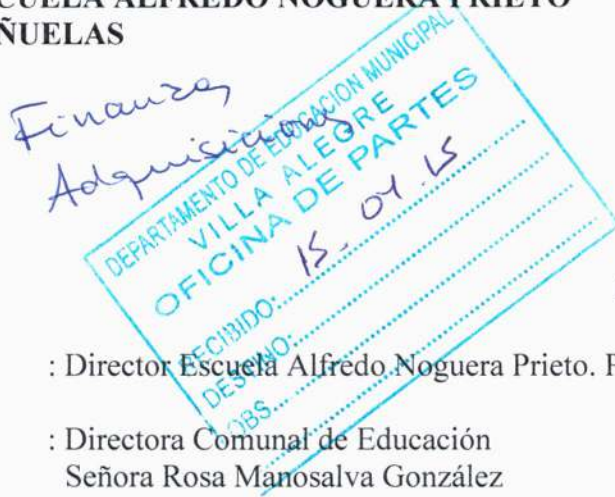 CUELA ALFREDO NOGUERA PRIETO
ÑUELAS
Finanzas
Adquisiciones
DEPARTAMENTO DE EDUCACION MUNICIPAL
VILLA ALEGRE
OFICINA DE PARTES
RECIBIDO: 15. 04. 15
DESTINO:
OBS.
: Director Escuela Alfredo Noguera Prieto.
: Directora Comunal de Educación
Señora Rosa Manosalva González